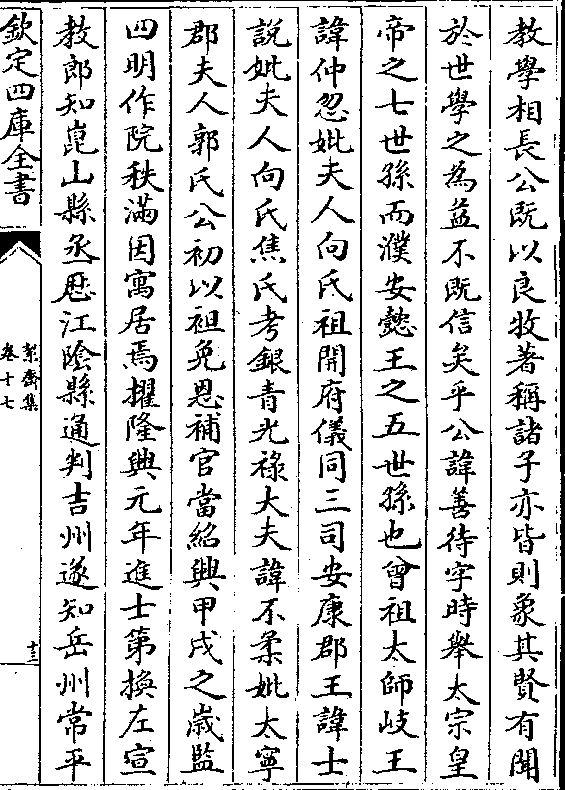 教學相長公既以良牧著稱諸子亦皆則象其賢有聞
於世學之為益不既信矣乎公諱善待字時舉太宗皇
帝之七世孫而濮安懿王之五世孫也曾祖太師岐王
諱仲忽妣夫人向氏祖開府儀同三司安康郡王諱士
說妣夫人向氏焦氏考銀青光祿大夫諱不柔妣太寧
郡夫人郭氏公初以袒免恩補官當紹興甲戌之歲監
四明作院秩滿因寓居焉擢隆興元年進士第換左宣
教郎知崑山縣丞歷江陰縣通判吉州遂知岳州常平
欽定四庫全書
絜齋集
卷十七
十三